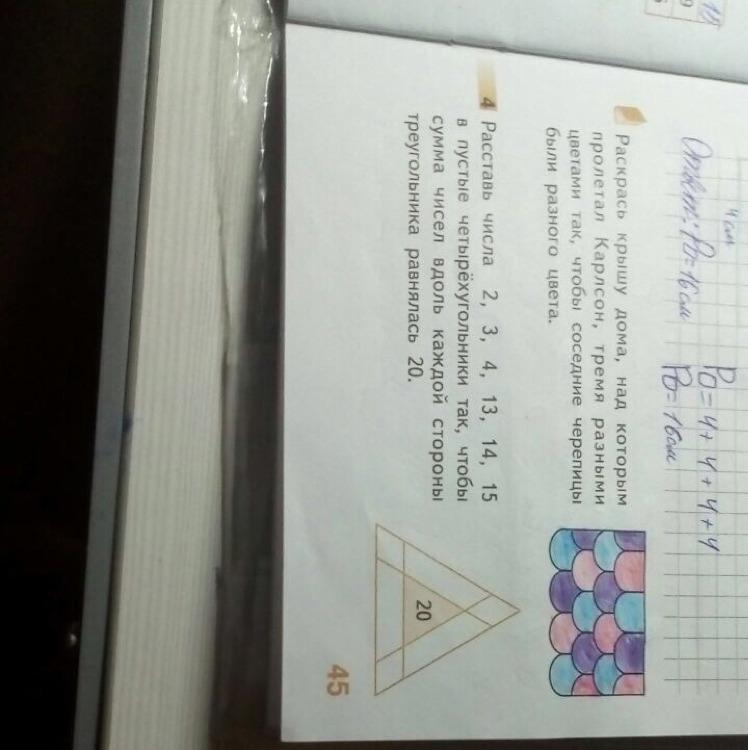 4 см
Р□ = 4 + 4 + 4 + 4
Р□ = 16 см
Ответ: Р□ = 16 см
Раскрась крышу дома, над которым
пролетал Карлсон, тремя разными
цветами так, чтобы соседние черепицы
были разного цвета.
4 Расставь числа 2, 3, 4, 13, 14, 15
в пустые четырёхугольники так, чтобы
сумма чисел вдоль каждой стороны
треугольника равнялась 20.
20
45